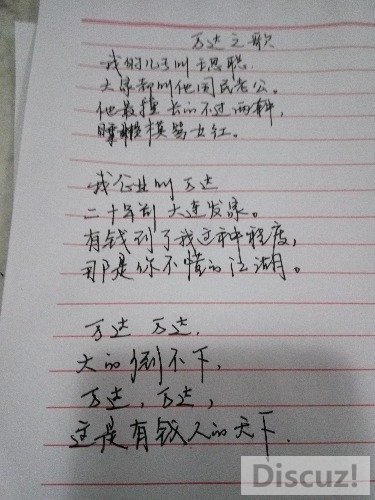 万达之歌
我的儿子叫王思聪.
大家都叫他国民老公。
他最擅长的不过两种,
模 网红。
我企业叫万达
二十年前 大连发家。
有钱到了我这种程度,
那是你不懂的江湖。
万达 万达,
大的倒不下,
万达,万达,
这是有钱人的天下.
Discuz!